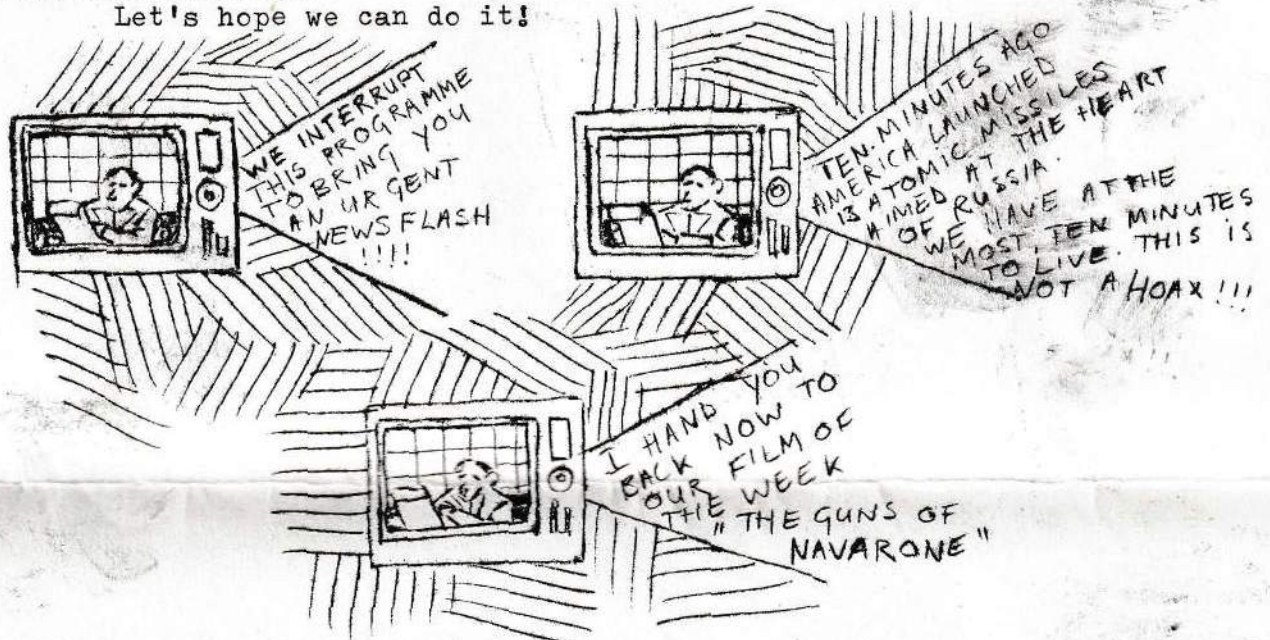 Let's hope we can do it!
WE INTERRUPT
THIS PROGRAMME
TO BRING YOU
AN URGENT
NEWSFLASH
!!!!
TEN MINUTES AGO
AMERICA LAUNCHED
13 ATOMIC MISSILES
AIMED AT THE HEART
OF RUSSIA.
WE HAVE AT THE
MOST TEN MINUTES
TO LIVE. THIS IS
NOT A HOAX!!!
I HAND YOU
BACK NOW TO
OUR FILM OF
THE WEEK
"THE GUNS OF
NAVARONE"